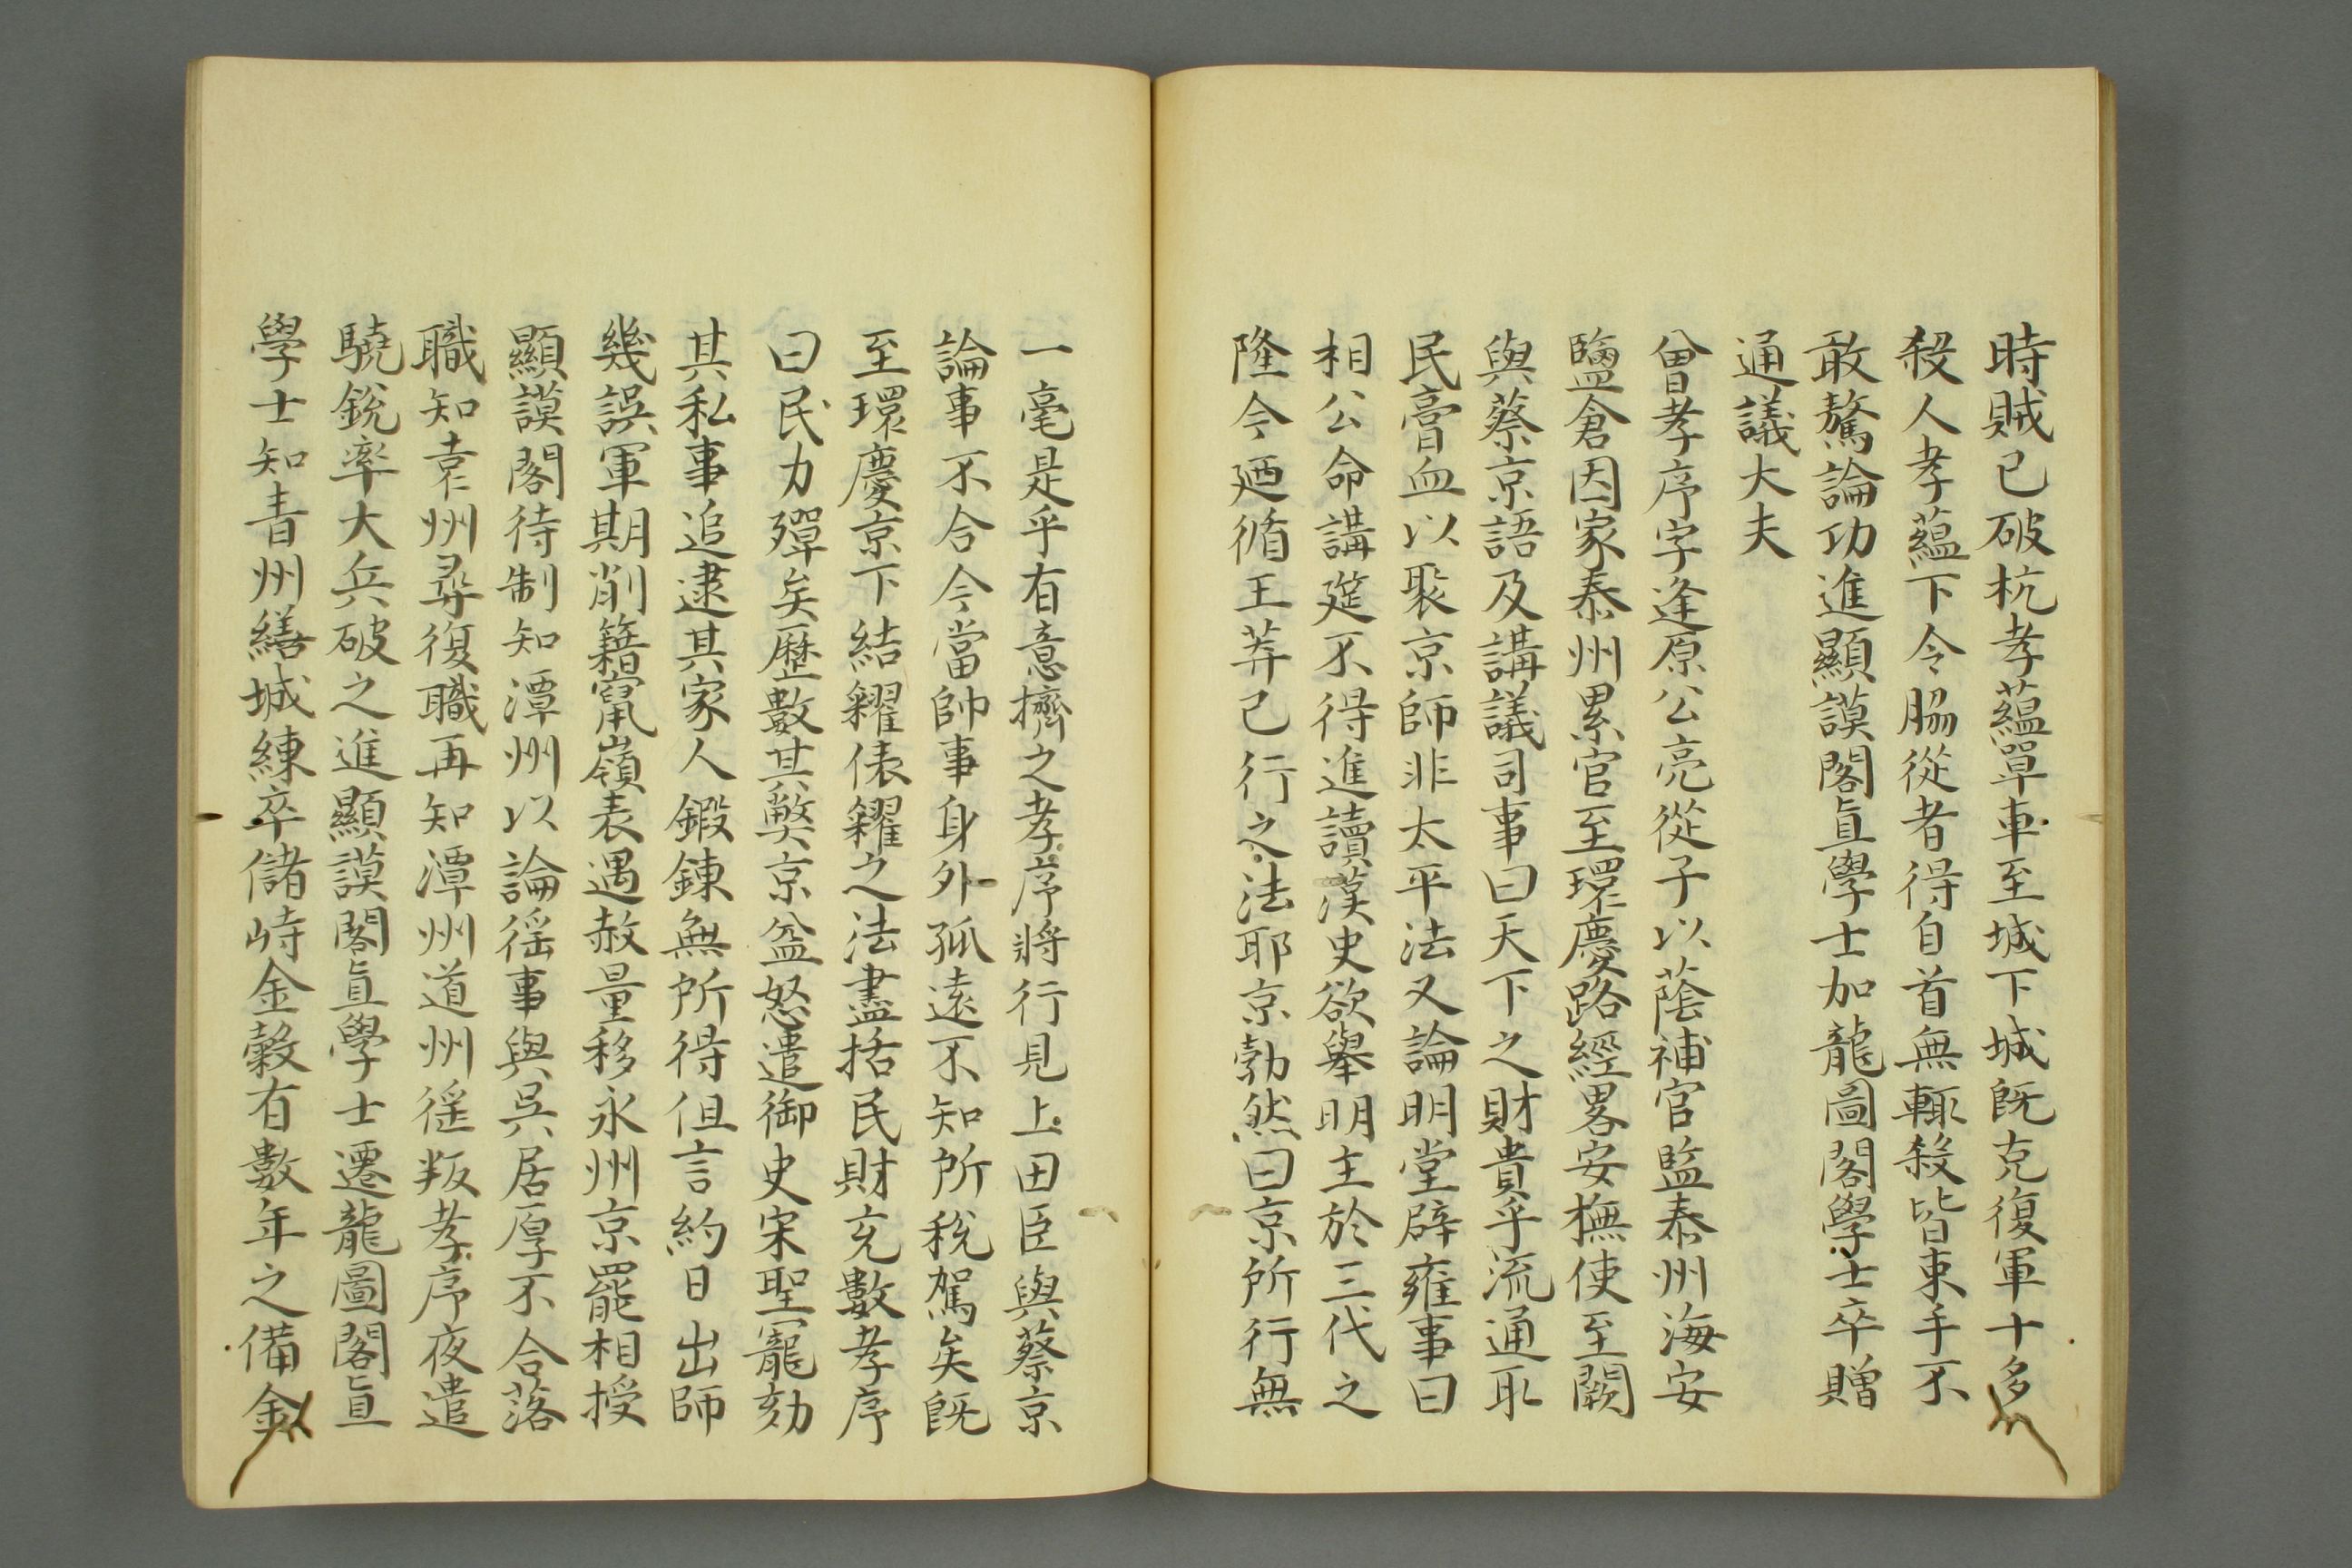 時賊已破杭孝蘊單車至城下城既克復軍士多
殺人孝蘊下令脇從者得自首無輙殺皆束手不
敢驁論功進顯謨閣直學士加龍圖閣學士卒贈
通議大夫
曾孝序字逢原公亮從子以蔭補官監泰州海安
鹽倉因家泰州累官至環慶路經畧安撫使至闕
與蔡京語及講議司事曰天下之財貴乎流通取
民膏血以聚京師非太平法又論明堂辟雍事曰
相公命講筵不得進讀漢史欲舉明主於三代之
隆今廼循王莽已行之法耶京勃然曰京所行無
一毫是乎有意擠之孝序將行見上曰臣與蔡京
論事不合今當帥事身外孤遠不知所稅駕矣既
至環慶京下結糴俵糴之法盡括民財充數孝序
曰民力殫矣歷數其獘京益怒遣御史宋聖寵劾
其私事追逮其家人鍛鍊無所得但言約日出師
幾誤軍期削籍竄嶺表遇赦量移永州京罷相授
顯謨閣待制知潭州以論徭事與吳居厚不合落
職知袁州尋復職再知潭州道州徭叛孝序夜遣
驍銳率大兵破之進顯謨閣直學士遷龍圖閣直
學士知青州繕城練卒儲峙金穀有數年之備金